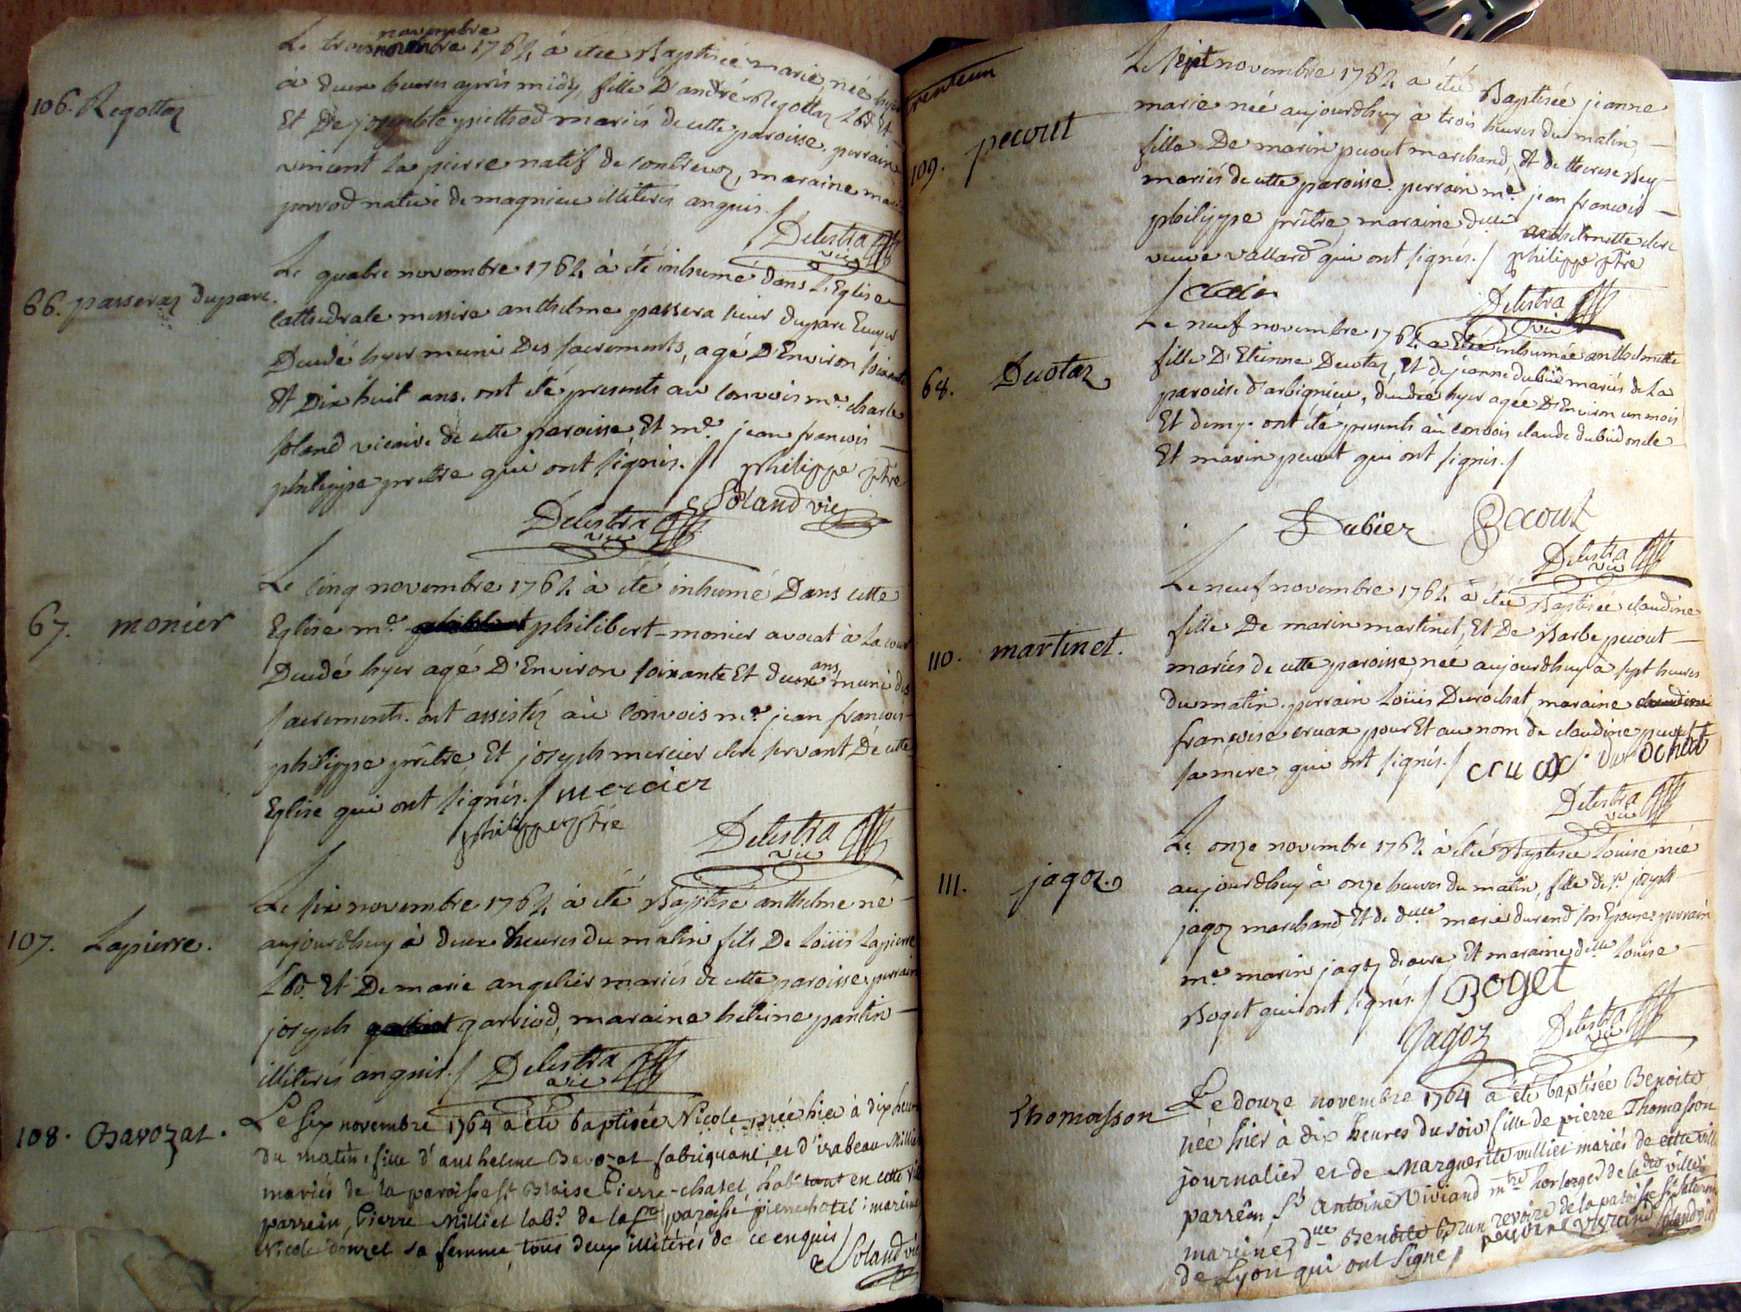 novembre
Le trois novembre 1764 à été Baptisée marie, née hyer
à deux heures après midy, fille D'andré Regottaz Lab.
106. Regottaz
Et De josephte piethod mariés de cette paroisse, perrain
vincent la pierre natif de contrevoz, maraine marie
pervod native de magnieu illiterés enquis./.
Delestra vic
Le quatre novembre 1764 à été inhumé dans L'Eglise
66. passeraz duparc.
Cathedrale messire anthelme passera sieur duparc Ecuyer
Decedé hyer muni Des sacrements, agé D'Environ soixante
Et Dix huit ans. ont été presents au convois mr. charle
soland vicaire de cette paroisse Et mr. jean francois
philippe prestre qui ont signés./. philippe ptre
C Soland vic
Delestra vic
Le Cinq novembre 1764 à été inhumé Dans cette
67. monier
Eglise mr. philibert monier avocat à La cour
Decedé hyer agé D'Environ soixante Et deux ans muni des
sacrements. ont assistés au Convois mr. jean francois
philippe prêtre, Et joseph mercier clerc servant De cette
Eglise qui ont signés./. mercier
philippe ptre
Delestra vic
Le six novembre 1764 à été Baptisé anthelme né
107. Lapierre.
aujourdhuy à deux heures du matin fils De Loüis Lapierre
Lab. Et De marie angelier mariés de cette paroisse, perrain
joseph garriod, maraine heleine pantin
illiterés enquis./. Delestra vic
108. Bavozat.
Le six novembre 1764 a été baptisée Nicole, née hier à dix heures
du matin, fille d'anthelme Bavozat fabriquant, et d'izabeau Milliet
mariés de la paroisse st. Blaise Pierre-chatel, habitant en cette ville
parrein, Pierre Milliet labr. de la ste. paroisse pierrechatel; mareine
Nicole donzel sa femme, tous deux illitérés de ce enquis
C Soland vic
Le sept novembre 1764 a été Baptisée jeanne
109. pecout
marie née aujourdhuy à trois heures du matin,
fille De marin pecout marchand, Et de therese Rey
mariés de cette paroisse. perrain mr. jean francois
philippe prêtre, maraine dlle anthelmette clerc
veuve vallard qui ont signés./. philippe ptre
Delestra vic
Le neuf novembre 1764 a Eté inhumée anthelmette
68. Ducotaz
fille D'Etienne Ducotaz, Et de jeanne dubié mariés de La
paroisse d'arbignieu, decedée hyer agée D'Environ un mois
Et demy. ont été presents au convois claude dubié oncle
Et marin pecout qui ont signés./.
Dubier Pecout
Delestra vic
Le neuf novembre 1764 à été Baptisée claudine
110. martinet.
fille De marin martinet, Et De Barbe pecout
mariés de cette paroisse née aujourdhuy à sept heures
du matin. perrain Loüis Durochat, maraine
françoise cruax pour Et au nom de claudine pecout
sa mere, qui ont signés./. cruax Durochat
Delestra vic
Le onze novembre 1764 à été Baptisée Louise née
111. jagoz.
aujourdhuy à onze heures du matin, fille de sr. joseph
jagoz marchand Et de dlle marie durand son Epouse, perrain
mr. marin jagoz diacre Et maraine dlle Louise
Boget qui ont signés./. Boget
Jagoz Delestra vic
Thomasson
Le douze novembre 1764 a été baptisée Benoite
née hier à dix heures du soir, fille de pierre Thomasson
journalier et de Marguerite vulliet mariés de cette ville
parrein, Sr. Antoine Viviand mtre. horloger de la dte. ville;
mareine, dlle Benoite Brun revoire de la paroisse
de Lyon qui ont signé